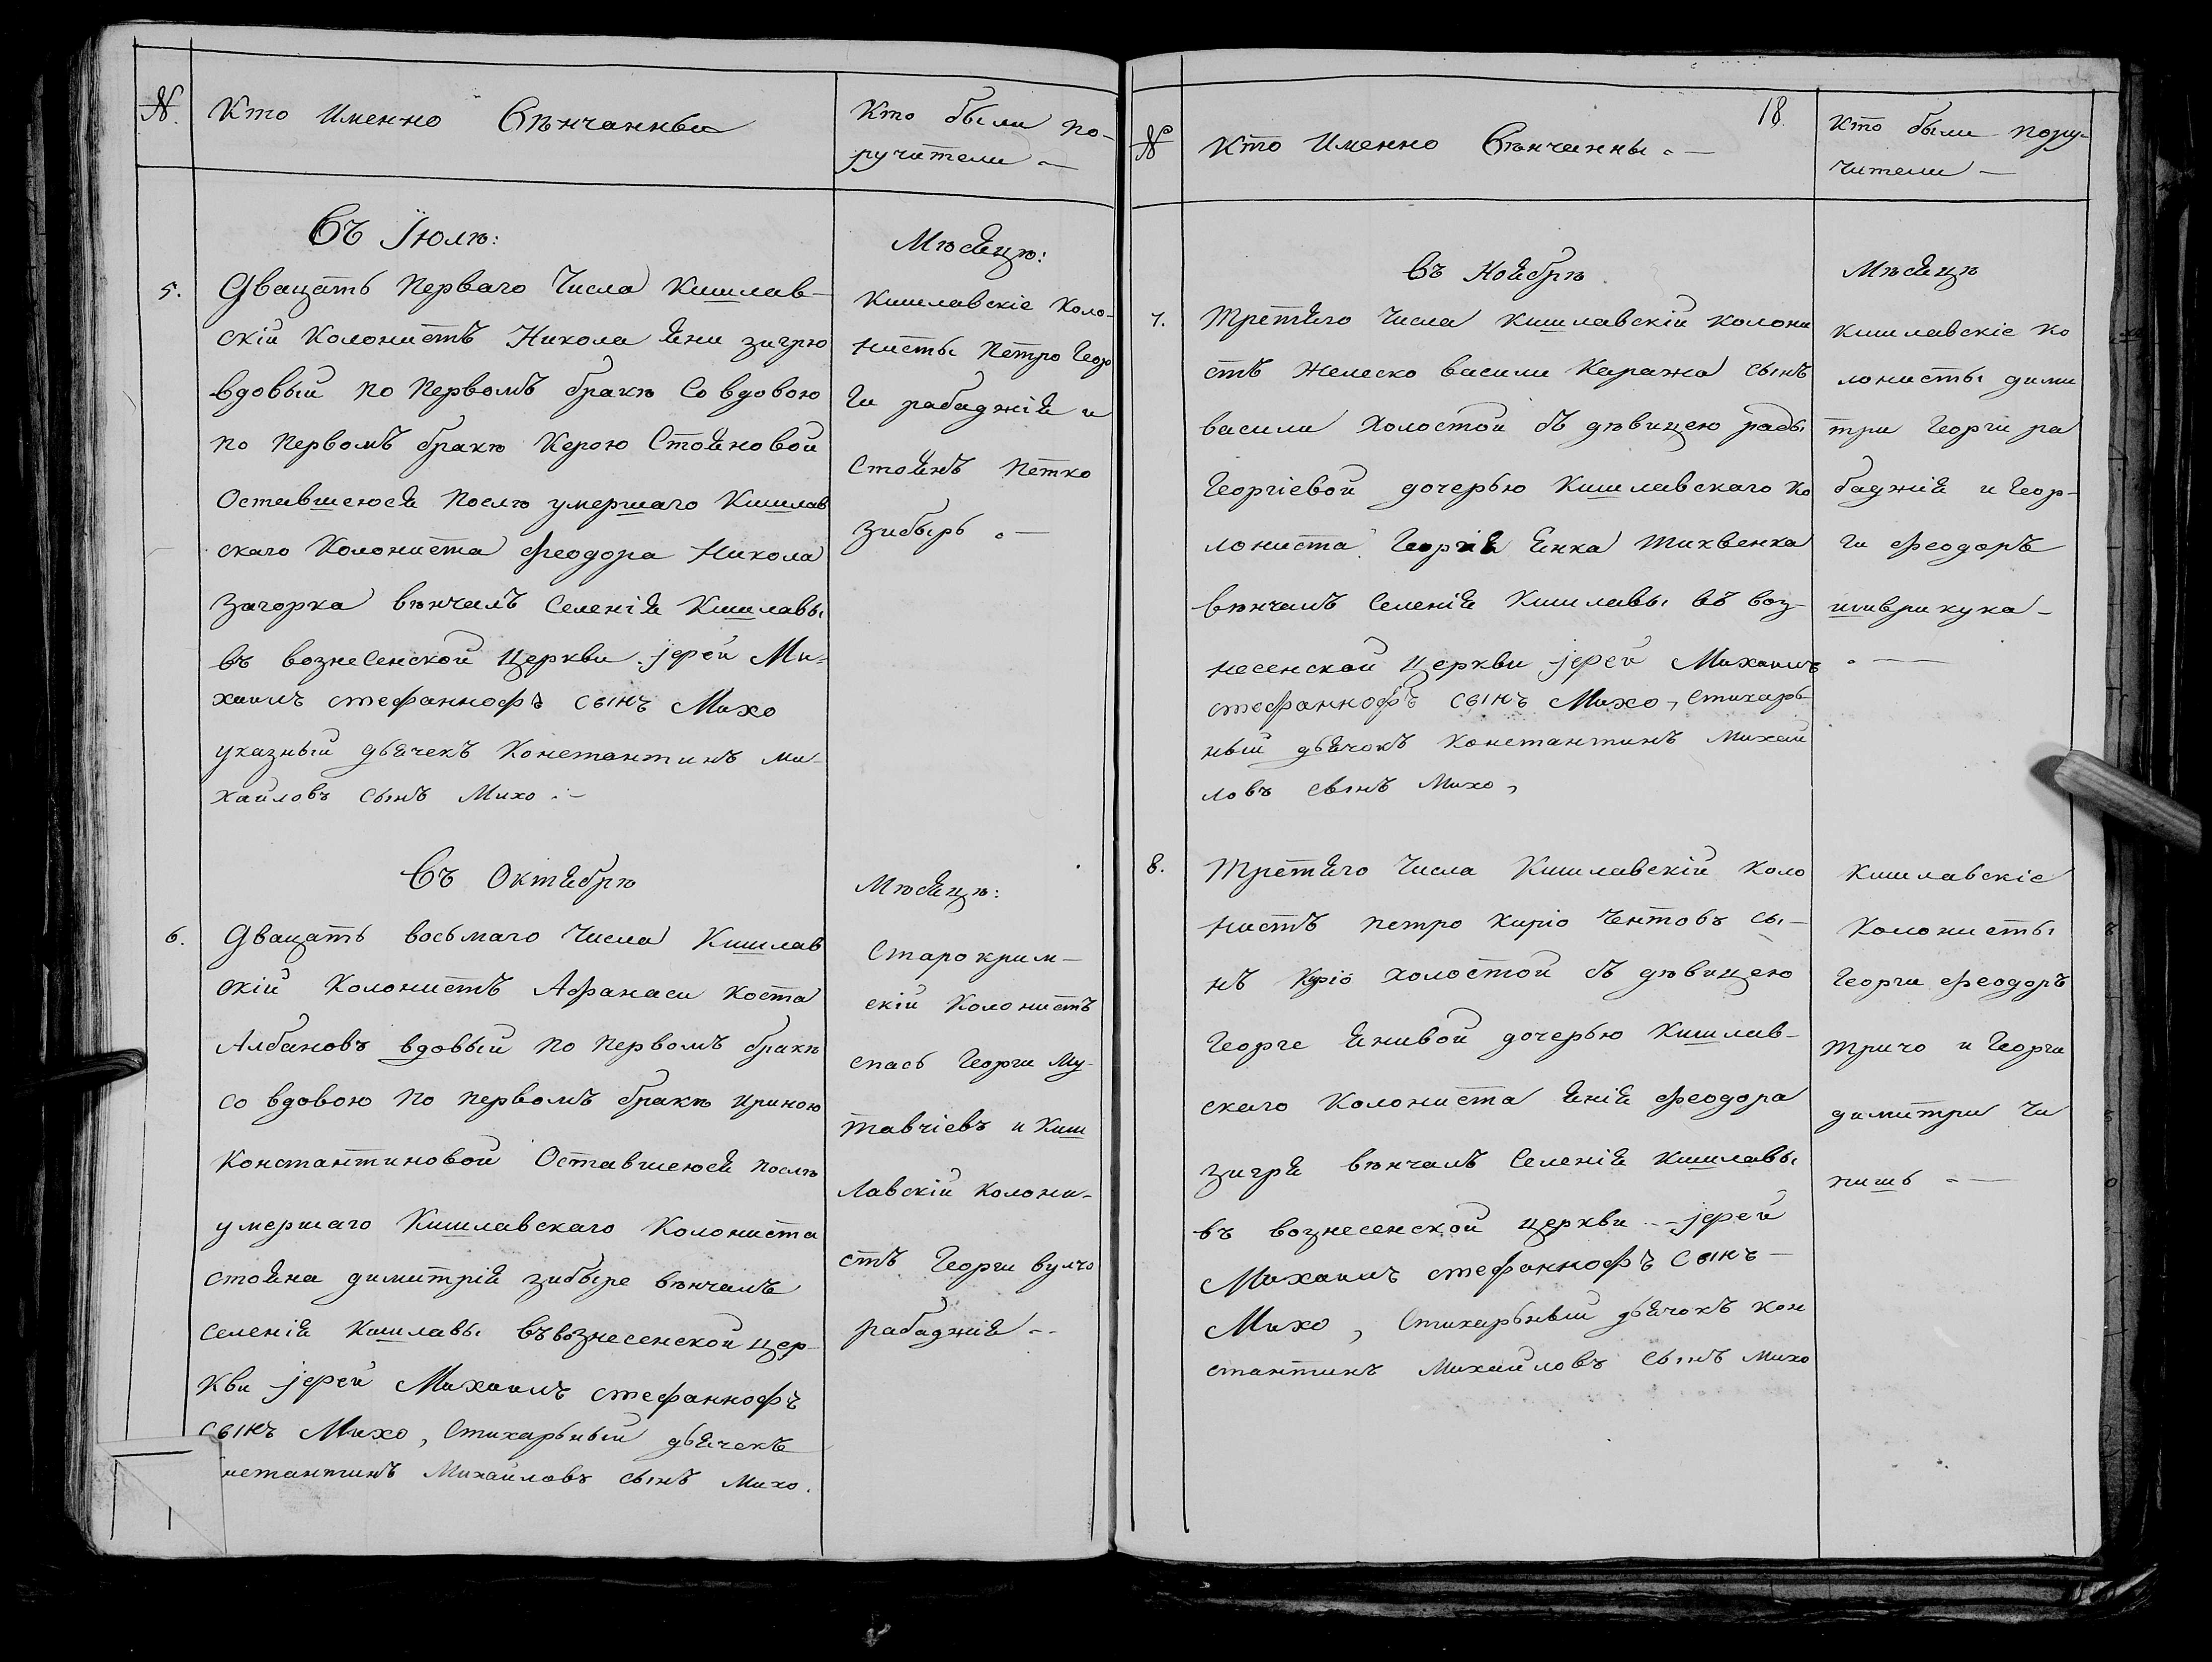 №. Кто Именно Вѣнчанны
Кто были по-
ручители
Въ Іюлѣ:
Мѣсяцѣ:
5. Дватцать Перваго Числа Кишлав-
скій Колонистъ Никола Яни загрю
вдовый по первомъ бракѣ Со вдовою
по первомъ бракѣ Керою Стояновой
Оставшеюся Послѣ умершаго Кишлав
скаго Колониста Феодора Никола
Загорка вѣнчалъ Селенія Кишлавы
въ вознесенской Церкви jерей Ми-
хаилъ стефанноѳъ сынъ Михо
указный дьячекъ Константинъ Ми-
хайловъ сынъ Михо.
Кишлавскіе Коло-
нисты Петро Геор
ги рабаджія и
Стоянъ Петко
Зибырь
Въ Октябрѣ
Мѣсяцѣ:
6. Дватцать восьмаго Числа Кишлав
скій Колонистъ Афанаси Коста
Албановъ вдовый по первомъ бракѣ
со вдовою по первомъ бракѣ Ириною
Константиновой Оставшеюся послѣ
умершаго Кишлавскаго Колониста
стояна димитрія зибыре вѣнчалъ
Селенія Кишлавы въ вознесенской цер-
кви jерей Михаилъ стефанноѳъ
сынъ Михо, Стихарьный дьячекъ
нстантинъ Михайловъ сынъ Михо.
Старокрим-
скій Колонистъ
спасъ Георги Му-
тавчіевъ и Киш
лавскій колони-
стъ Георги вулчо
рабаджія
18
№ Кто Именно Вѣнчанны
Кто были Пору-
чители
Въ Ноябрѣ
Мѣсяцѣ
7. Третяго Числа Кишлавскій колони
стъ Желеско васили Каража сынъ
васили Холостой съ дѣвицею рады
Георгіевой дочерью Кишлавскаго ко
лониста Георгія Енка Тиквенка
вѣнчалъ Селенія Кишлавы въ воз-
несенской Церкви jерей Михаилъ
стефанноѳъ сынъ Михо, Стихарь
ный дьячокъ Константинъ Михай
ловъ сынъ Михо,
Кишлавскіе ко
лонисты дими
три Георги ра
баджія и Геор-
ги Феодоръ
шиврикука-
8. Третяго Числа Кишлавскій Коло
нистъ Петро Киріо Чентовъ сы-
нъ Киріо холостой съ дѣвицею
Георге Янивой дочерью Кишлав-
скаго Колониста Янія Феодора
загря вѣнчалъ Селенія Кишлавы
въ вознесенской церкви jерей
Михаилъ стефанноѳъ сынъ
Михо, Стихарьный дьячокъ Кон
стантинъ Михайловъ сынъ Михо
Кишлавскіе
Колонисты
Георги Феодоръ
тричо и Георги
димитри Чи
пишъ